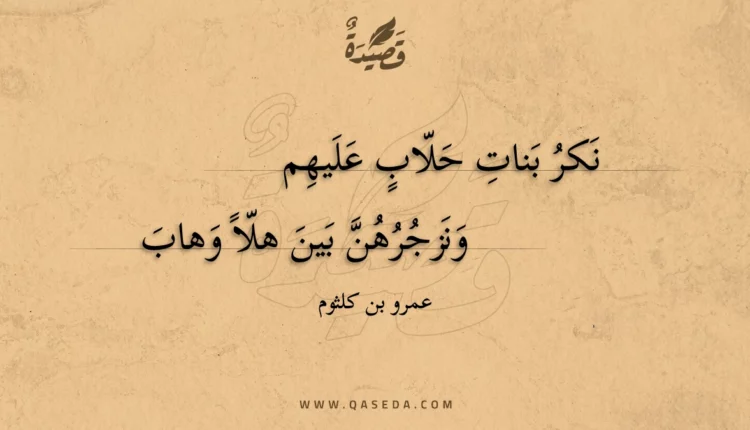 قَصِيدَةٌ
نَكرُ بَناتِ حَلّابٍ عَلَيهِم
وَنَزجُرُهُنَّ بَينَ هلّاً وَهابَ
عمرو بن كلثوم
WWW.QASEDA.COM